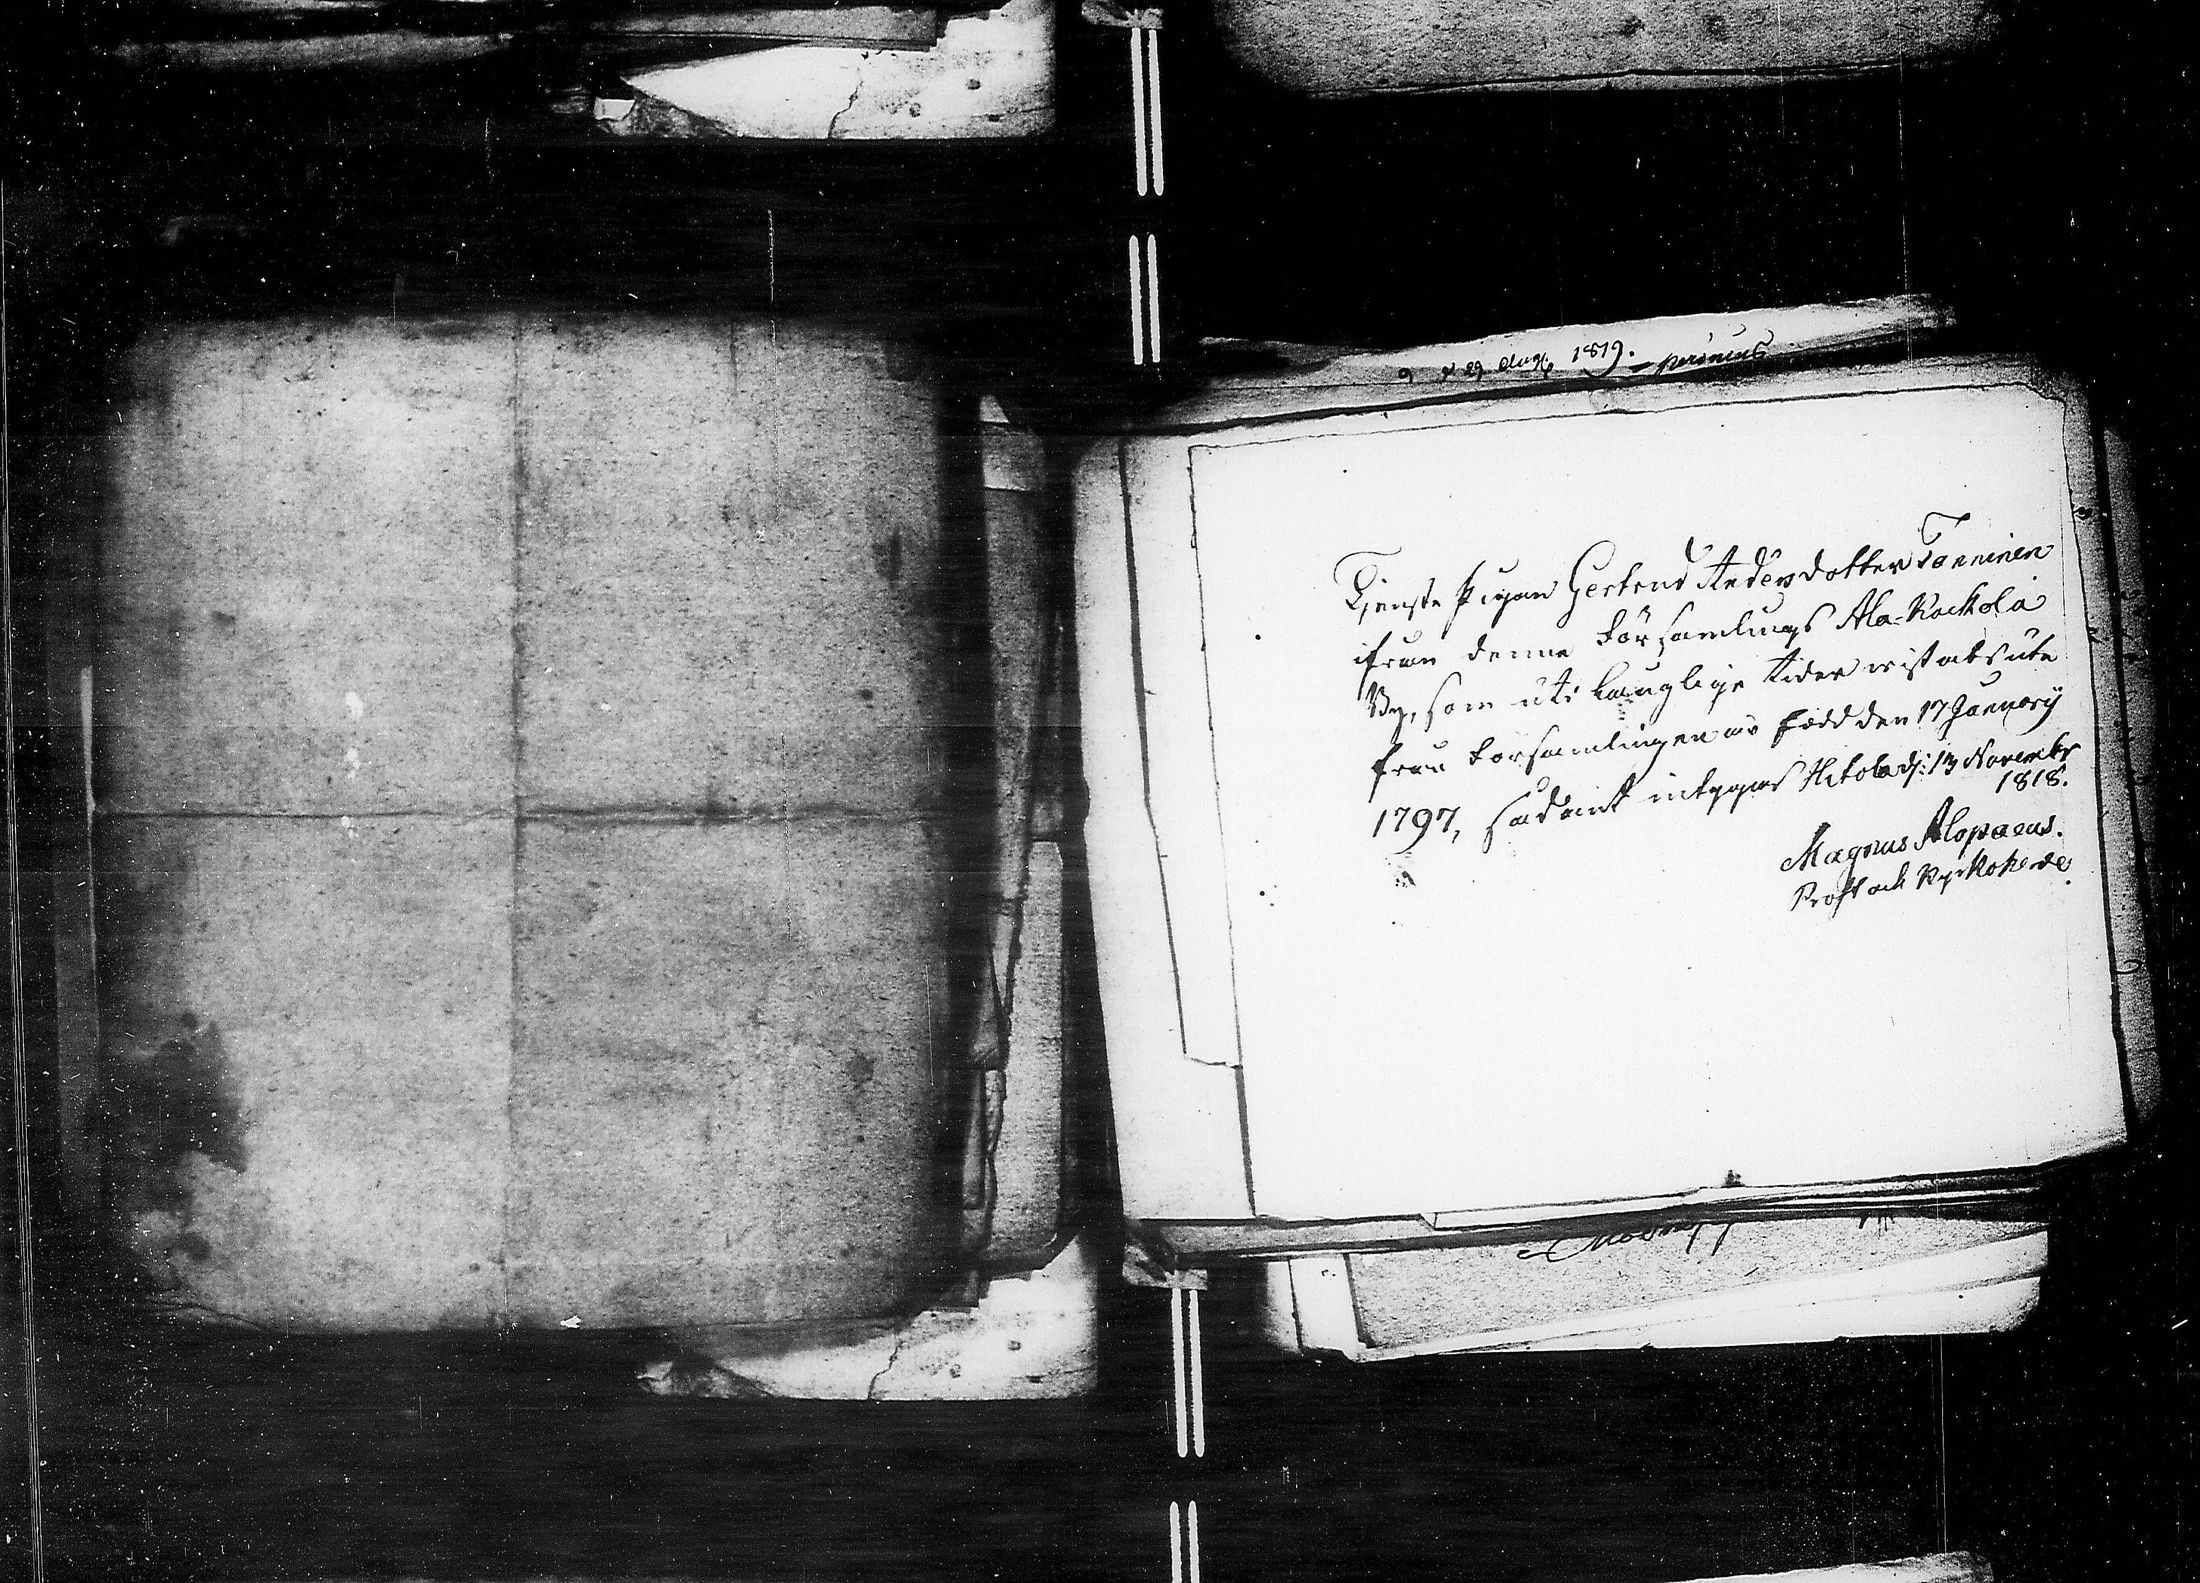 29 Aug. 1819.
Tjenste Pigan Gertrud Andersdotter Tanninen
ifrån denne Församlings Ala-Kockola
By, som uti langlige tider vistats ute
från Församlingen är född den 17 January
1797, sådant intygar Hitola d: 13 Novembr
1818.
Magnus Alopaeus.
Prost och Kyrkoherde